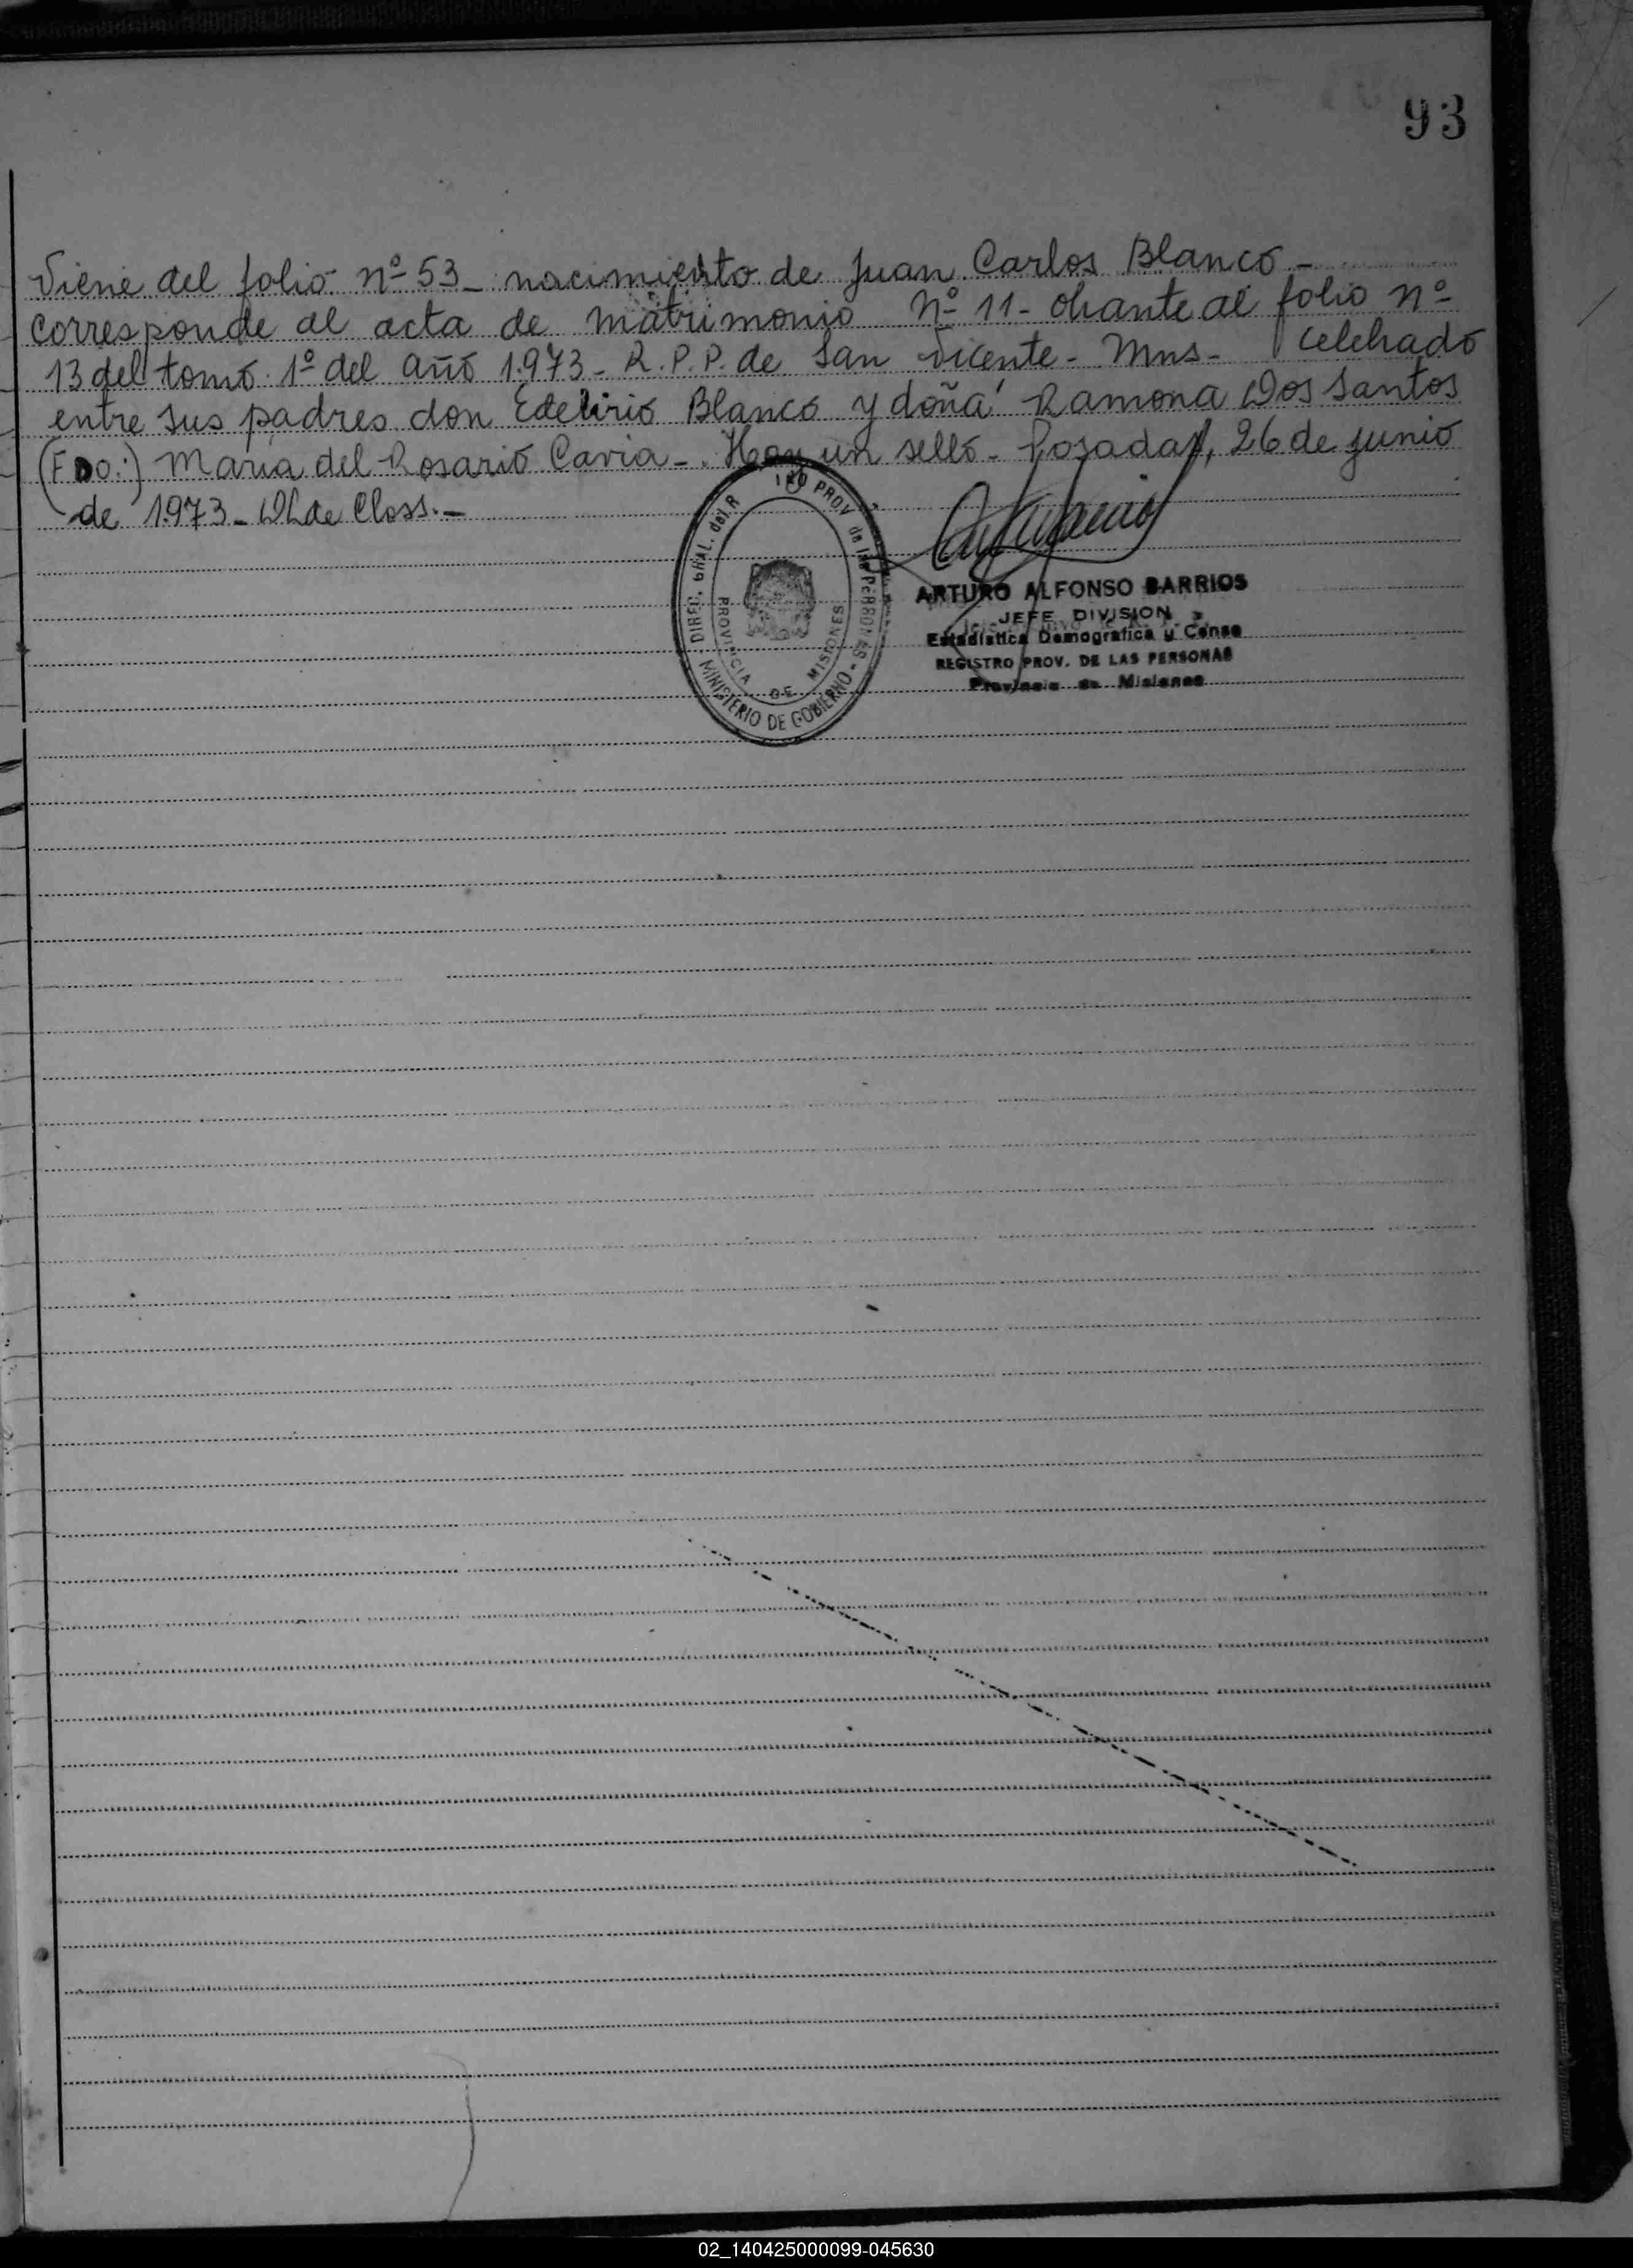 93
Viene del folio nº 53 - nacimiento de Juan Carlos Blanco -
Corresponde al acta de matrimonio Nº 11 - obrante al folio nº
13 del tomo 1º del año 1.973 - R.P.P. de San Vicente - Mns - celebrado
entre sus padres don Edelirio Blanco y doña Ramona Dos Santos
(FDO:) Maria del Rosario Cavia - . Hay un sello - Posadas, 26 de junio
de 1.973 - de Closs. -
DIREC. GRAL. del R PROV de las PERSONAS
PROVINCIA DE MISIONES
MINISTERIO DE GOBIERNO -
ARTURO ALFONSO BARRIOS
JEFE DIVISION
Estadistica Demografica y Censo
REGISTRO PROV. DE LAS PERSONAS
Provincia de Misiones
02_140425000099-045630